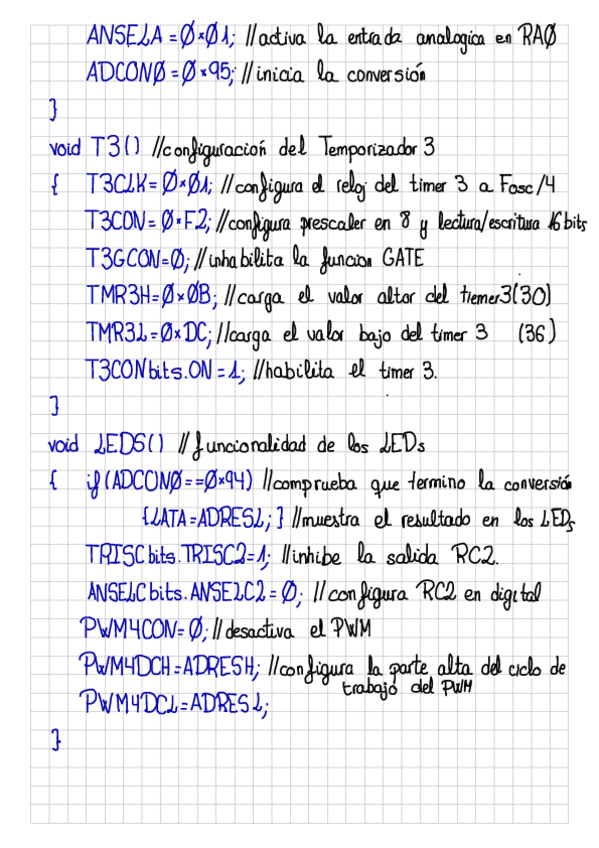 ANSELA = 0x01; //activa la entrada analogica en RA0
ADCON0 = 0x95; //inicia la conversión
}
void T3() //configuración del Temporizador 3
{ T3CLK = 0x01; //configura el reloj del timer 3 a Fosc/4
T3CON = 0xF2; //configura prescaler en 8 y lectura/escritura 16 bits
T3GCON=0; //inhabilita la funcion GATE
TMR3H=0x0B; //carga el valor altor del tiemer3(30)
TMR3L=0xDC; //carga el valor bajo del timer 3 (36)
T3CONbits.ON = 1; //habilita el timer 3.
}
void LEDS() //funcionalidad de los LEDs
{ if(ADCON0==0x94) //comprueba que termino la conversión
{LATA=ADRESL;} //muestra el resultado en los LEDs
TRISCbits.TRISC2=1; //inhibe la salida RC2.
ANSELCbits.ANSELC2=0; //configura RC2 en digital
PWM4CON=0; //desactiva el PWM
PWM4DCH=ADRESH; //configura la parte alta del ciclo de
trabajo del PWM
PWM4DCL=ADRESL;
}